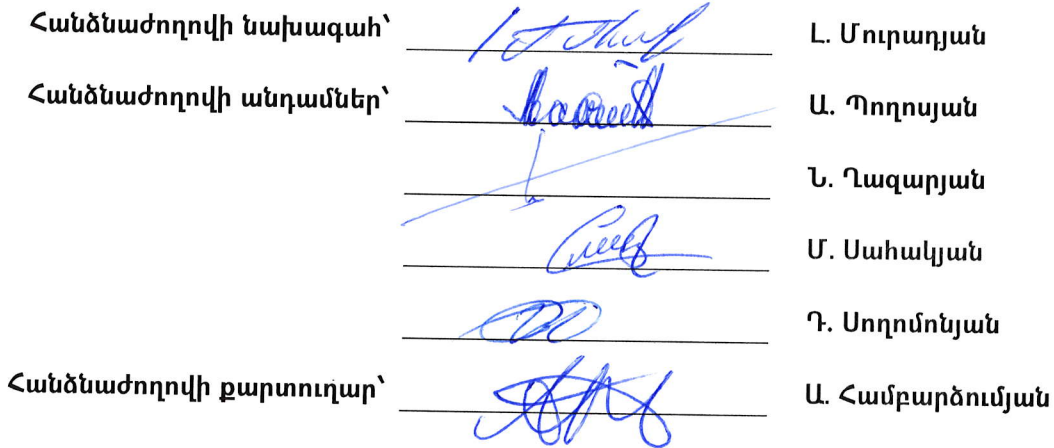 Հանձնաժողովի նախագահ՝ Լ. Մուրադյան
Հանձնաժողովի անդամներ՝ Ա. Պողոսյան
Ն. Ղազարյան
Մ. Սահակյան
Դ. Սողոմոնյան
Հանձնաժողովի քարտուղար՝ Ա. Համբարձումյան